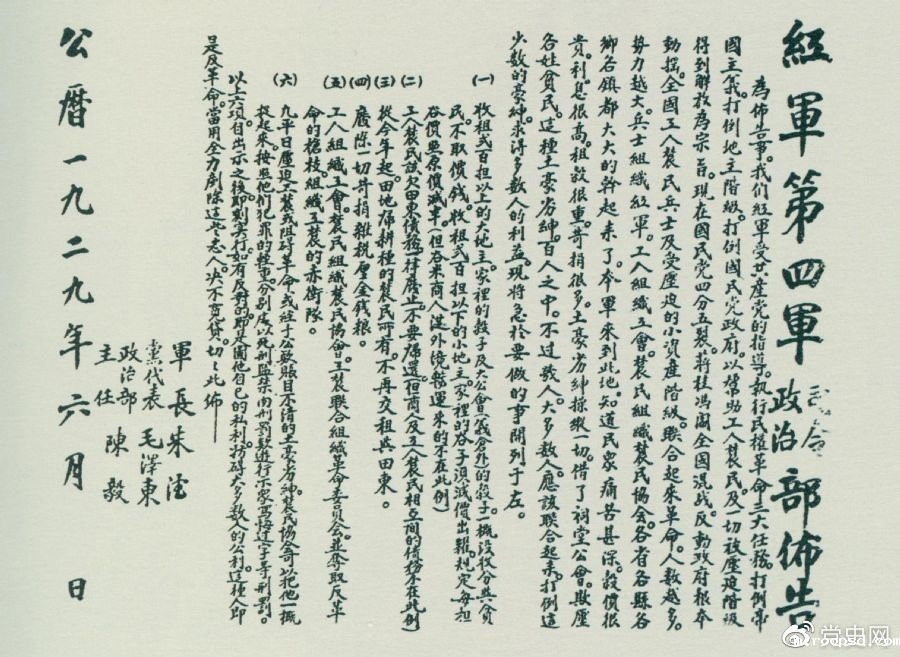 紅軍第四軍司令政治部佈告
為佈告事。我們紅軍受共產黨的指導。執行民權革命三大任務。打倒帝
國主義。打倒地主階級。打倒國民黨政府。以幫助工人農民及一切被壓迫階級
得到解放為宗旨。現在國民党四分五裂。蔣桂馮閻全國混战。反動政府根本
動搖。全國工人農民兵士及受壓迫的小資產階級。联合起來革命。人数越多。
勢力越大。兵士組織紅軍。工人組織工會。農民組織農民協會。各省各縣各
鄉各鎮都大大的幹起來了。本軍來到此地。知道民眾痛苦甚深。穀價很
貴。利息很高。租穀很重。苛捐很多。土豪劣紳操縱一切。借了祠堂公會。欺壓
各姓貧民。這種土豪劣紳。百人之中。不过数人。大多数人應該联合起來。打倒這
少数的豪紳。求得多数人的利益。現將急於要做的事開列于左。
(一) 收租弍百担以上的大地主。家裡的穀子及大公會(義倉外)的穀子一概没收分與貧
民。不取價錢。收租弍百担以下的小地主。家裡的谷子須減價出糶。規定每担
谷價照原價減半。(但谷米商人從外境販運來的不在此例)
(二) 工人農民該欠田東債務一律廢止。不要歸還。(但商人及工人農民相互間的債務不在此例)
(三) 從今年起。田地歸耕種的農民所有。不再交租與田東。
(四) 廢除一切苛捐雜税厘金錢粮。
(五) 工人組織工會。農民組織農民協會。工農联合組織革命委員會。並奪取反革
命的槍枝組織工農的赤衛隊。
(六) 凡平日壓迫工農或阻碍革命。或經手公欵賬目不清的土豪劣紳。農民協會可以把他一概
捉起來。按照他们犯罪的輕重。分别處以死刑監禁肉刑罰欵遊行示眾寫悔过字等刑罰。
以上六項自出示之後。即刻实行。如有反對的。即是圖他自己的私利。妨碍大多数人的公利。這種人即
是反革命。當用全力剷除這些惡人。决不寬貸。切切此佈
軍長 朱德
黨代表 毛澤東
政治部主任 陳毅
公曆一九二九年六月 日
党史网